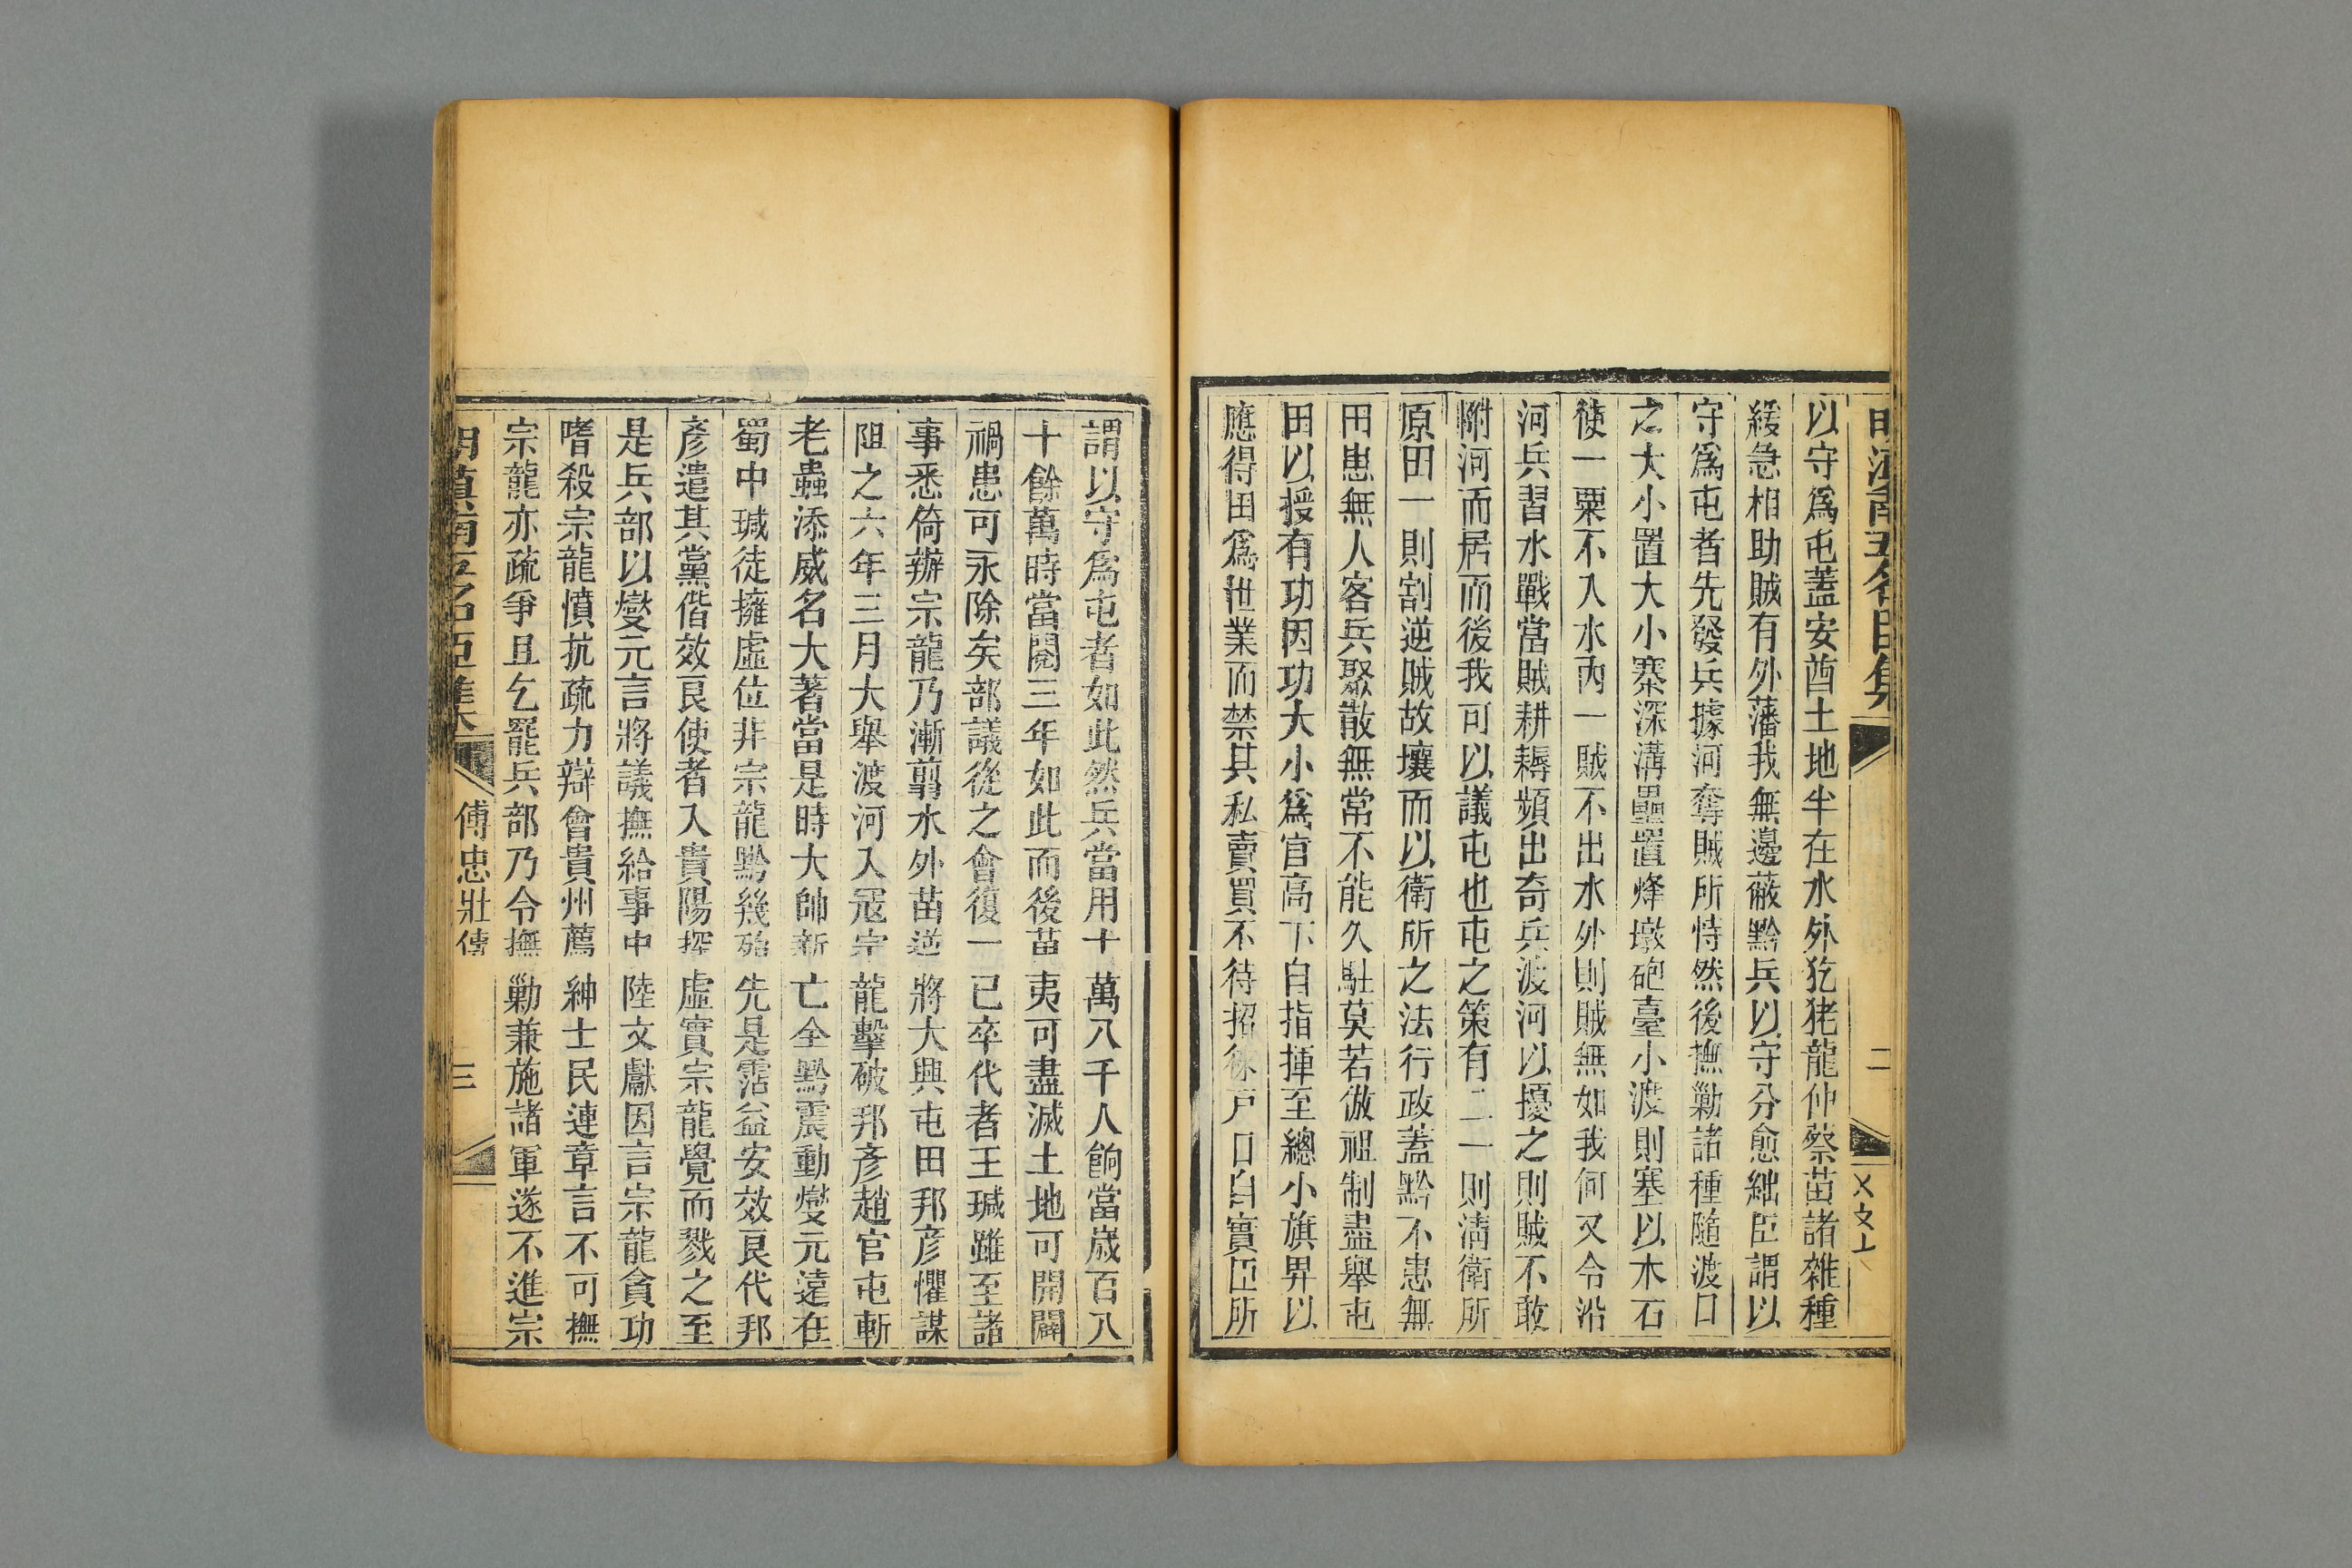 明滇南五名臣集
二
以守爲屯蓋安酋土地半在水外犵狫龍仲蔡苗諸雜種
緩急相助賊有外藩我無邊蔽黔兵以守分愈絀臣謂以
守爲屯者先發兵據河奪賊所恃然後撫勦諸種隨渡口
之大小置大小寨深溝壘置烽墩砲臺小渡則塞以木石
使一粟不入水內一賊不出水外則賊無如我何又令沿
河兵習水戰當賊耕耨頻出奇兵渡河以擾之則賊不敢
附河而居而後我可以議屯也屯之策有二一則淸衛所
原田一則割逆賊故壤而以衛所之法行政蓋黔不患無
田患無人客兵聚散無常不能久駐莫若倣祖制盡舉屯
田以授有功因功大小爲官高下自指揮至總小旗畀以
應得田爲世業而禁其私賣買不待招徠戶口自實臣所
謂以守爲屯者如此然兵當用十萬八千人餉當歲百八
十餘萬時當閱三年如此而後苗夷可盡滅土地可開闢
禍患可永除矣部議從之會復一已卒代者王瑊雖至諸
事悉倚辦宗龍乃漸翦水外苗逆將大興屯田邦彥懼謀
阻之六年三月大舉渡河入寇宗龍擊破邦彥趙官屯斬
老蟲添威名大著當是時大帥新亡全黔震動燮元遠在
蜀中瑊徒擁虛位非宗龍黔幾殆先是霑益安效良代邦
彥遣其黨偕效良使者入貴陽探虛實宗龍覺而戮之至
是兵部以燮元言將議撫給事中陸文獻因言宗龍貪功
嗜殺宗龍憤抗疏力辯會貴州薦紳士民連章言不可撫
宗龍亦疏爭且乞罷兵部乃令撫勦兼施諸軍遂不進宗
明滇南五名臣集
傅忠壯傳
三